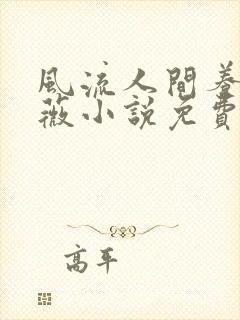 風流人間養
薇小說免費
高平